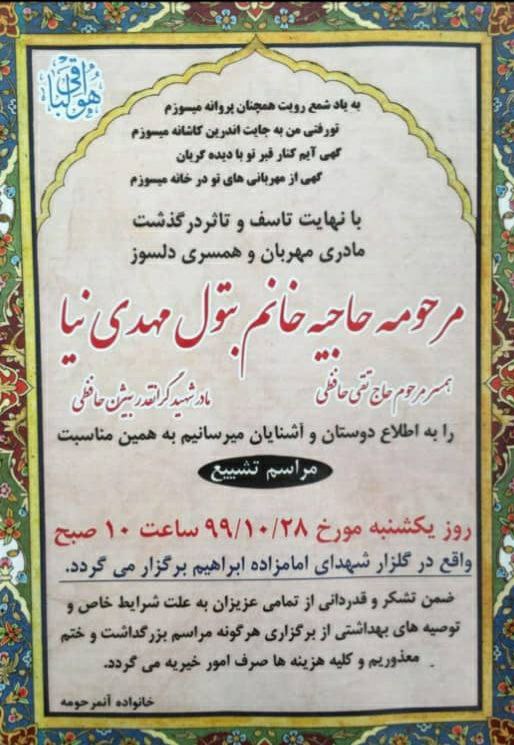 هوالباقی
به یاد شمع رویت همچنان پروانه میسوزم
تورفتی من به جایت اندرین کاشانه میسوزم
گهی آیم کنار قبر تو با دیده گریان
گهی از مهربانی های تو در خانه میسوزم
با نهایت تاسف و تاثر درگذشت
مادری مهربان و همسری دلسوز
مرحومه حاجیه خانم بتول مهدی نیا
همسر مرحوم حاج تقی حافظی
مادر شهید گرانقدر بیژن حافظی
را به اطلاع دوستان و آشنایان میرسانیم به همین مناسبت
مراسم تشییع
روز یکشنبه مورخ ۹۹/۱۰/۲۸ ساعت ۱۰ صبح
واقع در گلزار شهدای امامزاده ابراهیم برگزار می گردد.
ضمن تشکر و قدردانی از تمامی عزیزان به علت شرایط خاص و
توصیه های بهداشتی از برگزاری هرگونه مراسم بزرگداشت و ختم
معذوریم و کلیه هزینه ها صرف امور خیریه می گردد.
خانواده آنمرحومه